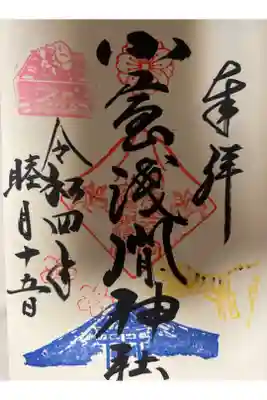 奉拝
小室淺間神社
令和四年
睦月十五日